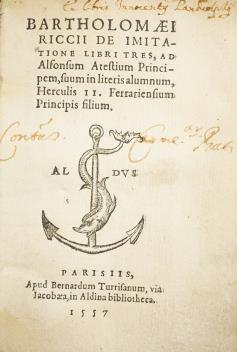 Ex Libris
BARTHOLOMÆI
RICCII DE IMITA-
TIONE LIBRI TRES, AD
Alfonsum Atestium Princi-
pem, suum in literis alumnum,
Herculis II. Ferrariensium
Principis filium.
AL DVS
PARISIIS,
Apud Bernardum Turrisanum, via
Iacobæa, in Aldina bibliotheca.
1557